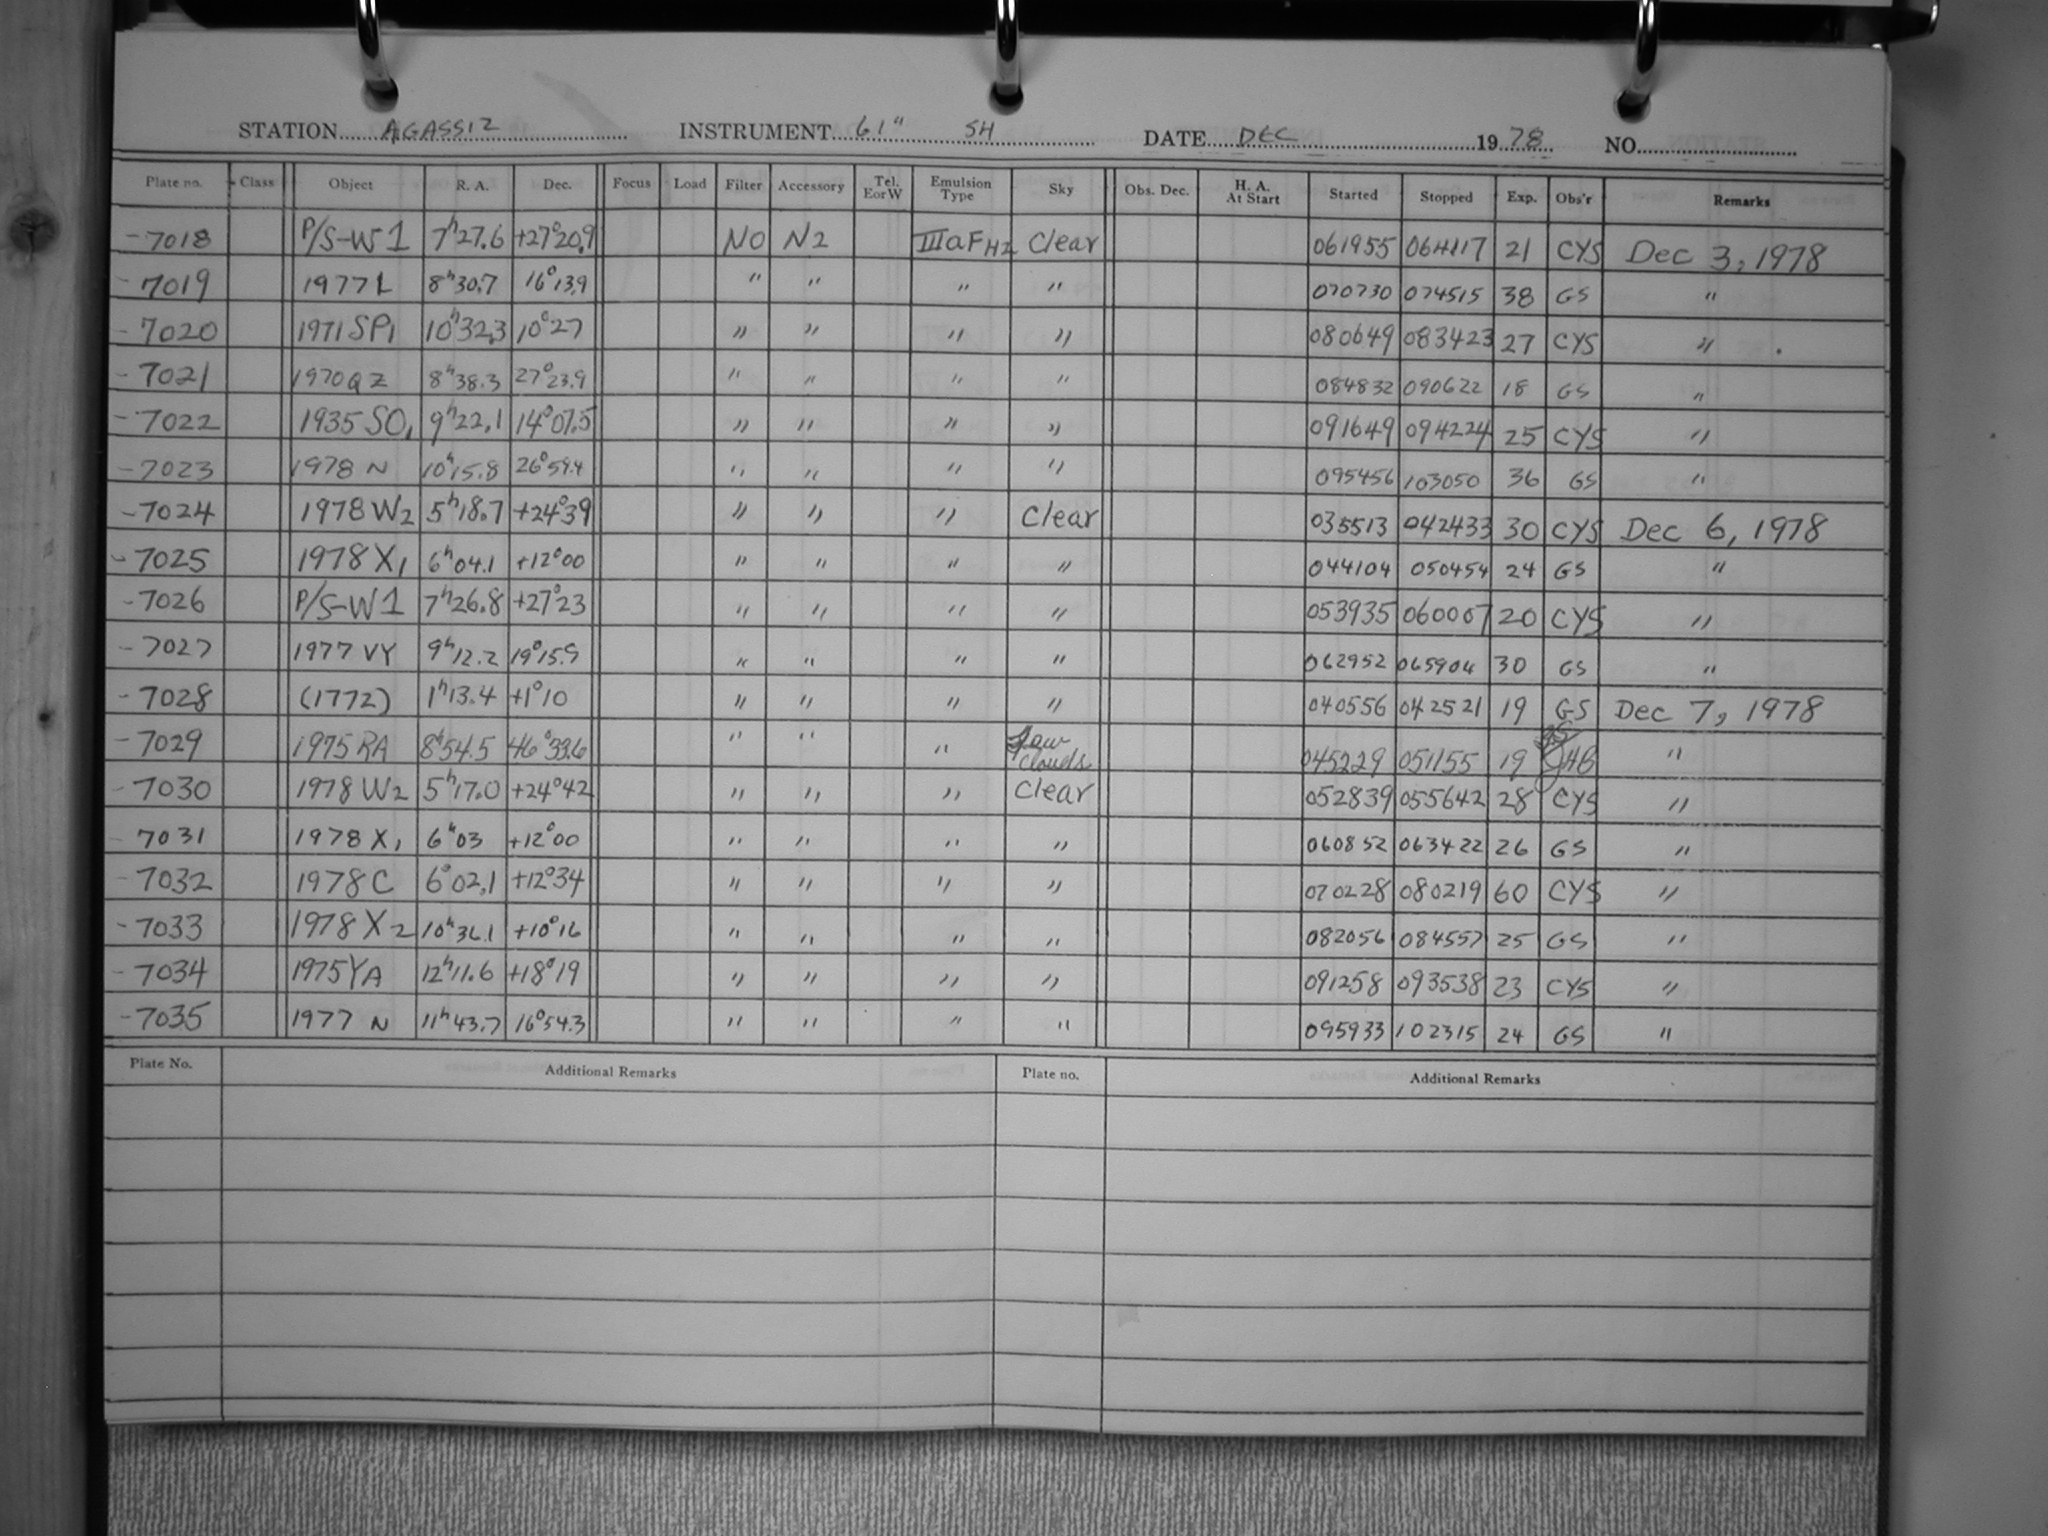 STATION AGASSIZ INSTRUMENT 61" SH DATE DEC 1978 NO.
Plate no. Class Object R. A. Dec. Focus Load Filter Accessory Tel. E or W Emulsion Type Sky Obs. Dec. H. A. At Start Started Stopped Exp. Obs'r Remarks
-7018 P/S-W1 7h27.6 +27°20.9 NO N2 IIIaF H2 Clear 061955 064117 21 CYS Dec 3, 1978
-7019 1977 L 8h30.7 16°13.9 " " " " 070730 074515 38 GS "
-7020 1971 SP1 10h32.3 10°27 " " " " 080649 083423 27 CYS "
-7021 1970 QZ 8h38.3 27°23.9 " " " " 084832 090622 18 GS "
-7022 1935 SO1 9h22.1 14°07.5 " " " " 091649 094224 25 CYS "
-7023 1978 N 10h15.8 26°59.4 " " " " 095456 103050 36 GS "
-7024 1978 W2 5h18.7 +24°39 " " " Clear 035513 042433 30 CYS Dec 6, 1978
-7025 1978 X1 6h04.1 +12°00 " " " " 044104 050454 24 GS "
-7026 P/S-W1 7h26.8 +27°23 " " " " 053935 060007 20 CYS "
-7027 1977 VY 9h12.2 19°15.9 " " " " 062952 065904 30 GS "
-7028 (1772) 1h13.4 +1°10 " " " " 040556 042521 19 GS Dec 7, 1978
-7029 1975 RA 8h54.5 46°33.6 " " " clouds 045229 051155 19 "
-7030 1978 W2 5h17.0 +24°42 " " " Clear 052839 055642 28 CYS "
-7031 1978 X1 6h03 +12°00 " " " " 060852 063422 26 GS "
-7032 1978 C 6°02.1 +12°34 " " " " 070228 080219 60 CYS "
-7033 1978 X2 10h36.1 +10°16 " " " " 082056 084557 25 GS "
-7034 1975 YA 12h11.6 +18°19 " " " " 091258 093538 23 CYS "
-7035 1977 N 11h43.7 16°54.3 " " " " 095933 102315 24 GS "
Plate No. Additional Remarks Plate no. Additional Remarks